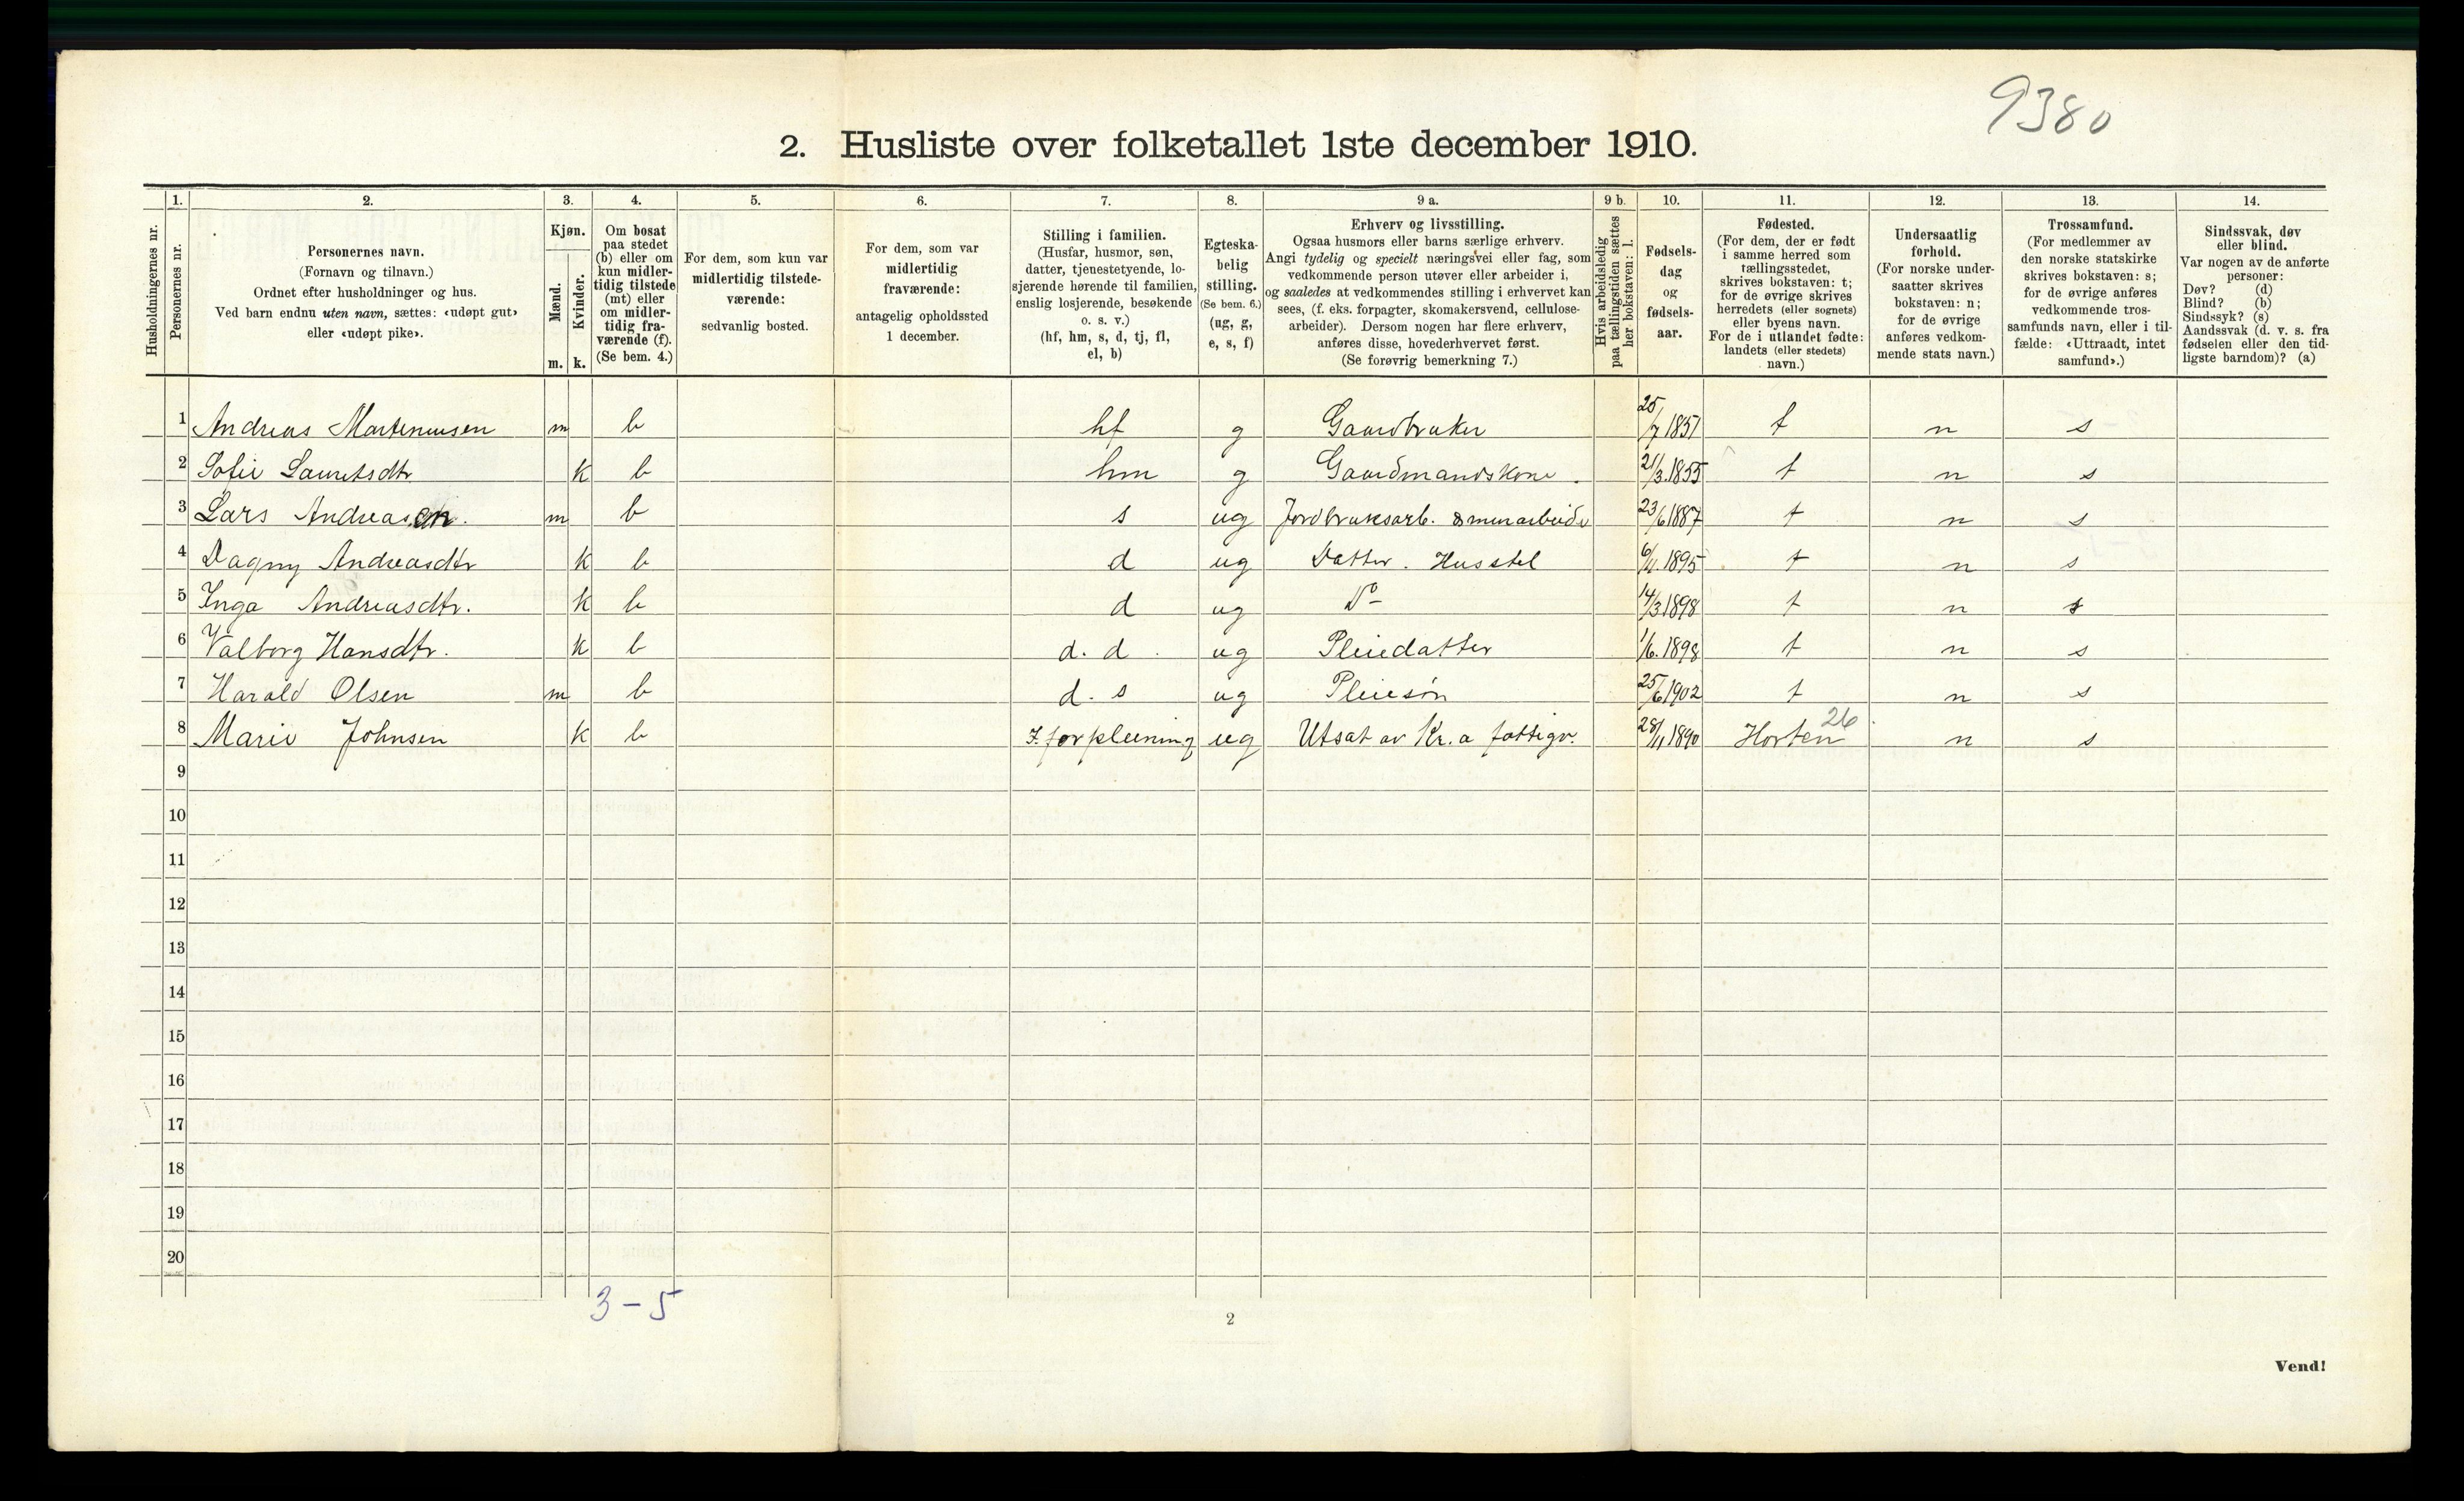 9380
2. Husliste over folketallet 1ste december 1910.
1. 2. 3. 4. 5. 6. 7. 8. 9 a. 9 b. 10. 11. 12. 13. 14.
Husholdningernes nr.
Personernes nr.
Personernes navn.
(Fornavn og tilnavn.)
Ordnet efter husholdninger og hus.
Ved barn endnu uten navn, sættes: «udøpt gut»
eller «udøpt pike».
Kjøn.
Mænd.
Kvinder.
m. k.
Om bosat
paa stedet
(b) eller om
kun midler-
tidig tilstede
(mt) eller
om midler-
tidig fra-
værende (f).
(Se bem. 4.)
For dem, som kun var
midlertidig tilstede-
værende:
sedvanlig bosted.
For dem, som var
midlertidig
fraværende:
antagelig opholdssted
1 december.
Stilling i familien.
(Husfar, husmor, søn,
datter, tjenestetyende, lo-
sjerende hørende til familien,
enslig losjerende, besøkende
o. s. v.)
(hf, hm, s, d, tj, fl,
el, b)
Egteska-
belig
stilling.
(Se bem. 6.)
(ug, g,
e, s, f)
Erhverv og livsstilling.
Ogsaa husmors eller barns særlige erhverv.
Angi tydelig og specielt næringsvei eller fag, som
vedkommende person utøver eller arbeider i,
og saaledes at vedkommendes stilling i erhvervet kan
sees, (f. eks. forpagter, skomakersvend, cellulose-
arbeider). Dersom nogen har flere erhverv,
anføres disse, hovederhvervet først.
(Se forøvrig bemerkning 7.)
Hvis arbeidsledig
paa tællingstiden sættes
her bokstaven: l.
Fødsels-
dag
og
fødsels-
aar.
Fødested.
(For dem, der er født
i samme herred som
tællingsstedet,
skrives bokstaven: t;
for de øvrige skrives
herredets (eller sognets)
eller byens navn.
For de i utlandet fødte:
landets (eller stedets)
navn.)
Undersaatlig
forhold.
(For norske under-
saatter skrives
bokstaven: n;
for de øvrige
anføres vedkom-
mende stats navn.)
Trossamfund.
(For medlemmer av
den norske statskirke
skrives bokstaven: s;
for de øvrige anføres
vedkommende tros-
samfunds navn, eller i til-
fælde: «Uttraadt, intet
samfund».)
Sindssvak, døv
eller blind.
Var nogen av de anførte
personer:
Døv? (d)
Blind? (b)
Sindssyk? (s)
Aandssvak (d. v. s. fra
fødselen eller den tid-
ligste barndom)? (a)
1 Andreas Marteniusen m b hf g Gaardbruker 25/7 1851 t n s
2 Sofie Lauritsdtr k b hm g Gaardmandskone. 21/3.1855 t n s
3 Lars Andreasen. m b s ug Jordbruksarb. & 23/6 1887 t n s
4 Dagny Andreasdtr k b d ug Datter. Husstel 6/11.1895 t n s
5 Inga Andreasdtr. k b d ug Do 14/3 1898 t n s
6 Valborg Hansdtr. k b d. d. ug Pleiedatter 1/6.1898 t n s
7 Harald Olsen m b d. s ug Pleiesøn 25/6 1902 t n s
8 Marie Johnsen k b I forpleining ug Utsat av Kr.a fattigv. 28/11 1890 Horten 26 n s
9
10
11
12
13
14
15
16
17
18
19
20
3 - 5
2
Vend!